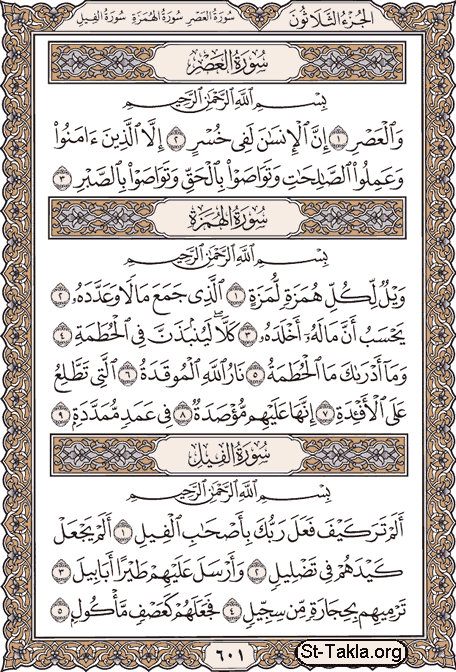 الجُزْءُ الثَّلَاثُونَ سُورَةُ العَصْرِ سُورَةُ الهُمَزَةِ سُورَةُ الفِيلِ
سُورَةُ العَصْرِ
بِسْمِ ٱللَّهِ ٱلرَّحْمَٰنِ ٱلرَّحِيمِ
وَٱلْعَصْرِ ١ إِنَّ ٱلْإِنسَٰنَ لَفِى خُسْرٍ ٢ إِلَّا ٱلَّذِينَ ءَامَنُوا۟
وَعَمِلُوا۟ ٱلصَّٰلِحَٰتِ وَتَوَاصَوْا۟ بِٱلْحَقِّ وَتَوَاصَوْا۟ بِٱلصَّبْرِ ٣
سُورَةُ الهُمَزَةِ
بِسْمِ ٱللَّهِ ٱلرَّحْمَٰنِ ٱلرَّحِيمِ
وَيْلٌ لِّكُلِّ هُمَزَةٍ لُّمَزَةٍ ١ ٱلَّذِى جَمَعَ مَالًا وَعَدَّدَهُۥ ٢
يَحْسَبُ أَنَّ مَالَهُۥٓ أَخْلَدَهُۥ ٣ كَلَّا ۖ لَيُنۢبَذَنَّ فِى ٱلْحُطَمَةِ ٤
وَمَآ أَدْرَىٰكَ مَا ٱلْحُطَمَةُ ٥ نَارُ ٱللَّهِ ٱلْمُوقَدَةُ ٦ ٱلَّتِى تَطَّلِعُ
عَلَى ٱلْأَفْـِٔدَةِ ٧ إِنَّهَا عَلَيْهِم مُّؤْصَدَةٌ ٨ فِى عَمَدٍ مُّمَدَّدَةٍۭ ٩
سُورَةُ الفِيلِ
بِسْمِ ٱللَّهِ ٱلرَّحْمَٰنِ ٱلرَّحِيمِ
أَلَمْ تَرَ كَيْفَ فَعَلَ رَبُّكَ بِأَصْحَٰبِ ٱلْفِيلِ ١ أَلَمْ يَجْعَلْ
كَيْدَهُمْ فِى تَضْلِيلٍ ٢ وَأَرْسَلَ عَلَيْهِمْ طَيْرًا أَبَابِيلَ ٣
تَرْمِيهِم بِحِجَارَةٍ مِّن سِجِّيلٍ ٤ فَجَعَلَهُمْ كَعَصْفٍ مَّأْكُولٍۭ ٥
٦٠١
St-Takla.org